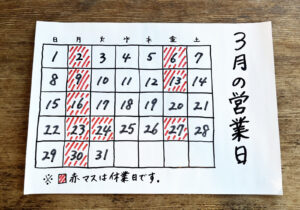 3月の営業日
日 月 火 水 木 金 土
1 2 3 4 5 6 7
8 9 10 11 12 13 14
15 16 17 18 19 20 21
22 23 24 25 26 27 28
29 30 31
※ 赤マスは休業日です。